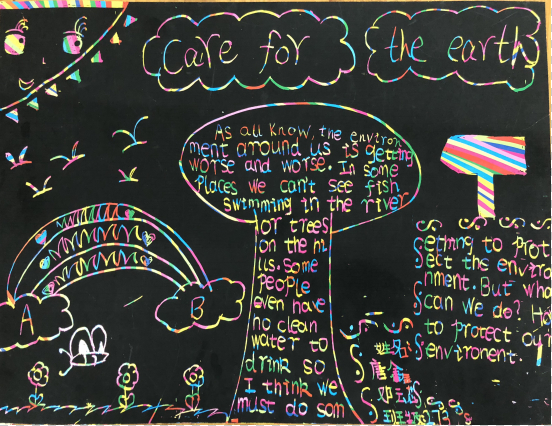 Care for
the earth
As all know, the environ
ment around us is getting
worse and worse. In some
places we can't see fish
swimming in the river
or trees
on the hi
us. some
people
even have
no clean
water to
drink so
I think we
must do som
eting to prot
ect the enviro
nment. But wha
can we do? Ho
to protect our
environent.
A
B
姓名: